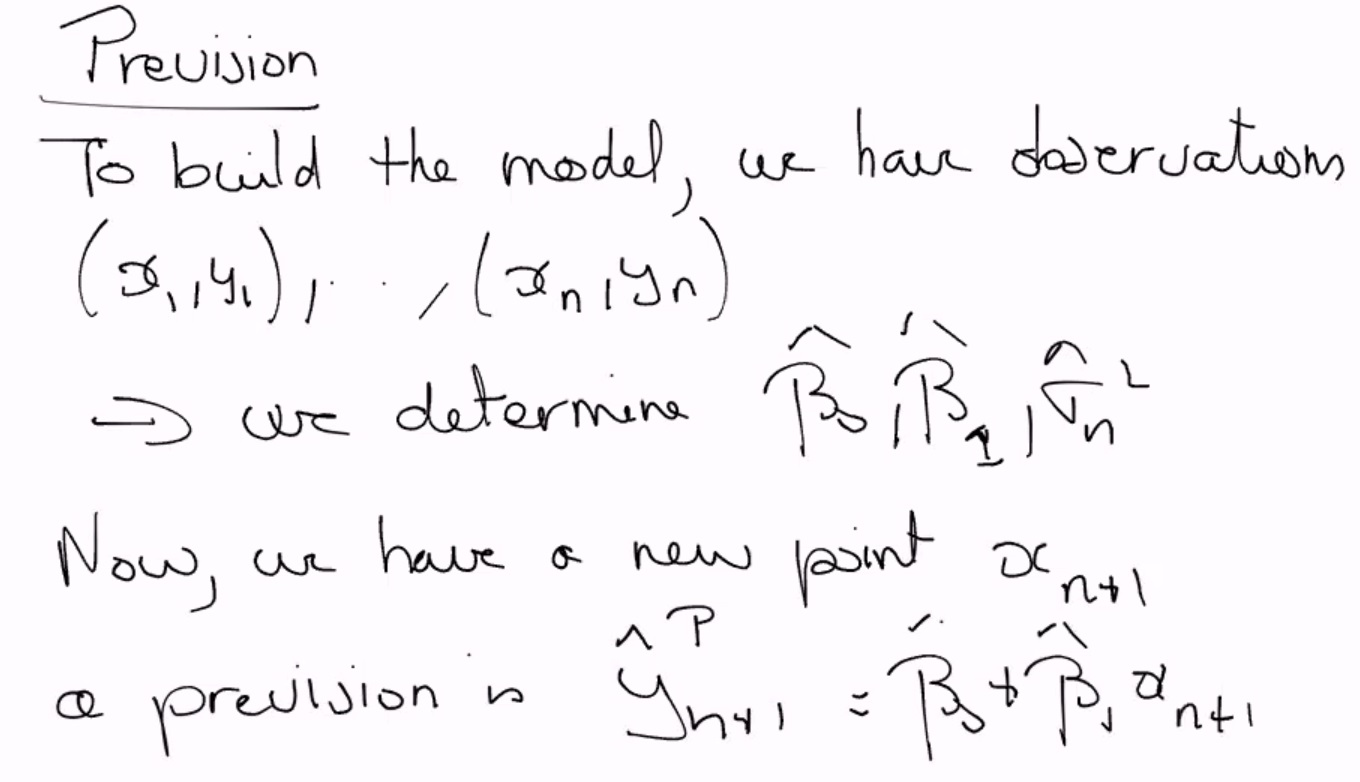 Prevision
To build the model, we have observations
(x₁, y₁), . . , (xₙ, yₙ)
→ we determine β̂₀, β̂₁, σ̂ₙ²
Now, we have a new point xₙ₊₁
a prevision is ŷᴾₙ₊₁ = β̂₀ + β̂₁ xₙ₊₁